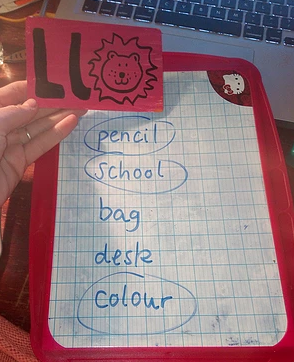 Ll
pencil
school
bag
desk
colour